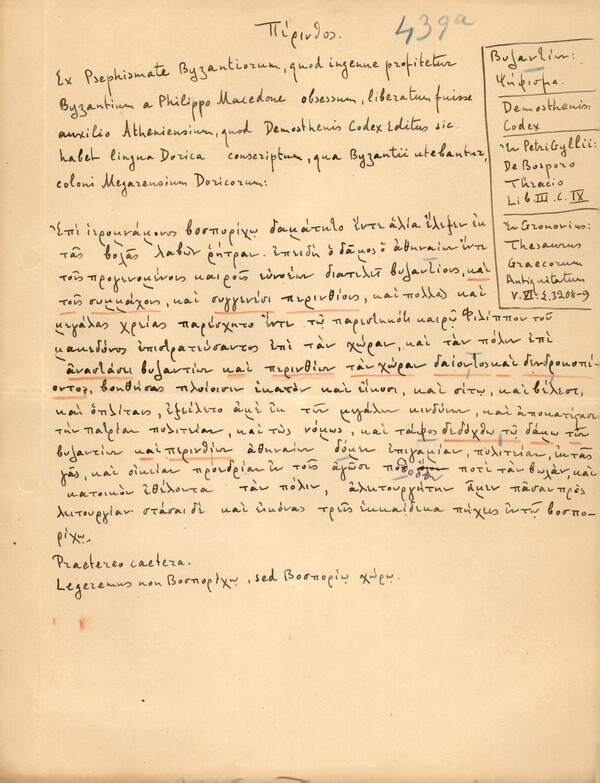 Πέρινθος.
439a
Ex Psephismate Byzantiorum, quod ingenue profitetur
Byzantium a Philippo Macedone obsessum, liberatum fuisse
auxilio Atheniensium, quod Demosthenis Codex Editus sic
habet lingua Dorica conscriptum, qua Byzantii utebantur,
coloni Megarensium Doricorum:
Βυζαντίων:
Ψήφισμα.
Demosthenis:
Codex
Ἐν Petri Gyllii:
De Bosporo
Thracio
Lib. III. C. IX
Ἐν Gronovius:
Thesaurus
Graecorum
Antiquitatum
V. VI. Σ. 3208-9
Ἐπὶ ἱερομνάμονος βοσπορίχω δαμάτητο ἔντε ἁλία ἔλεξεν ἐκ
τᾶς βολᾶς λαβὼν ῥήτραν. ἐπειδὴ ὁ δᾶμος ὁ ἀθηναίων ἔντε
τοῖς προγενομένοις καιροῖς εὐνοέων διατελεῖ βυζαντίοις, καὶ
τοῖς συμμάχοις, καὶ συγγενέσι περινθίοις, καὶ πολλὰς καὶ
μεγάλας χρείας παρέσχητο ἔντε τῷ παρεστηκότι καιρῷ Φιλίππου τοῦ
μακεδόνος ἐπιστρατεύσαντος ἐπὶ τὰν χώραν, καὶ τὰν πόλιν ἐπὶ
ἀναστάσει βυζαντίων καὶ περινθίων τὰν χώραν δαίοντος καὶ δενδροκοπέ-
οντος, βοηθήσας πλοίοισιν ἑκατὸν καὶ εἴκοσι, καὶ σίτῳ, καὶ βέλεσι,
καὶ ὁπλίταις, ἐξείλετο ἁμὲ ἐκ τῶν μεγάλων κινδύνων, καὶ ἀποκατέστασε
τὴν πατρίαν πολιτείαν, καὶ τὼς νόμως, καὶ τάφος δεδόχθω τῷ δάμῳ τῶν
βυζαντίων καὶ περινθίων ἀθηναίων δόμεν ἐπιγαμίαν, πολιτείαν, ἔκτασιν
γᾶς, καὶ οἰκίαν προεδρίαν ἐν τοῖς ἀγῶσι πόθοδον ποτὶ τὰν βωλὰν, καὶ
κατοικὲν ἐθέλοντα τὰν πόλιν, ἀλειτουργήτην ἄμεν πᾶσαι πρὸς
λειτουργίαν· στάσαι δὲ καὶ εἰκόνας τρεῖς ἑκκαίδεκα πήχεις ἐν τῷ βοσπο-
ρίχῳ.
Praetereo caetera.
Legeremus non Βοσπορίχῳ, sed Βοσπορίῳ χώρῳ.